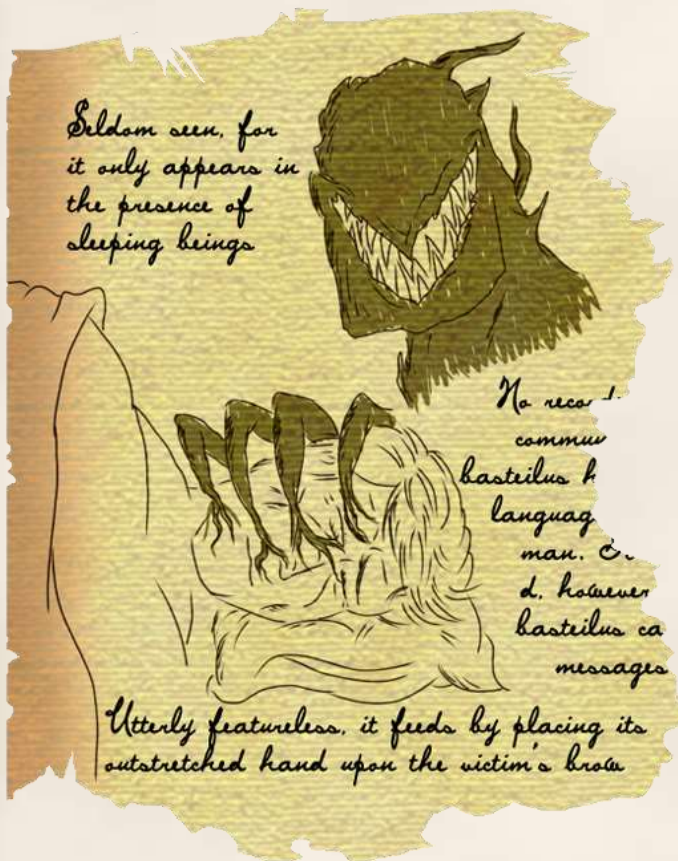 Seldom seen, for
it only appears in
the presence of
sleeping beings
No
basteilus
man.
d, however
basteilus ca
messages
Utterly featureless, it feeds by placing its
outstretched hand upon the victim's brow